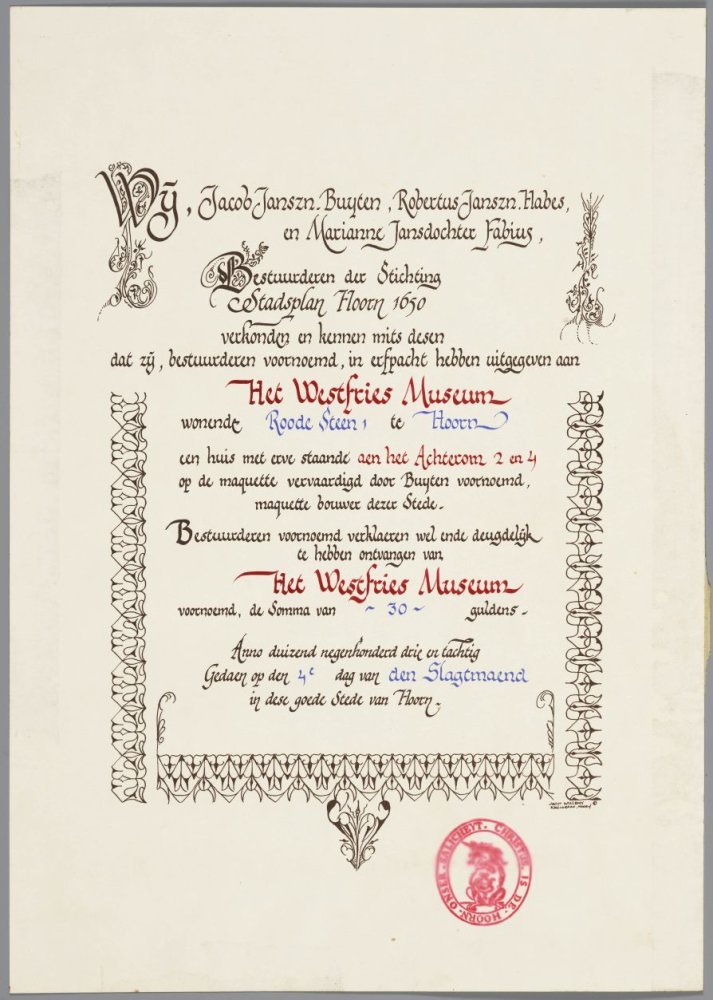 Wÿ, Jacob Janszn. Buyten, Robertus Janszn. Habes,
en Marianne Jansdochter Fabius,
Bestuurderen der Stichting
Stadsplan Hoorn 1650
verkonden en kennen mits desen
dat zÿ, bestuurderen voornoemd, in erfpacht hebben uitgegeven aan
Het Westfries Museum
wonende Roode Steen 1 te Hoorn
een huis met erve staande aen het Achterom 2 en 4
op de maquette vervaardigd door Buyten voornoemd,
maquette bouwer dezer Stede.
Bestuurderen voornoemd verklaeren wel ende deugdelÿk
te hebben ontvangen van
Het Westfries Museum
voornoemd, de Somma van ~ 30 ~ guldens.
Anno duizend negenhonderd drie en tachtig
Gedaen op den 4e dag van den Slagtmaend
in dese goede Stede van Hoorn.
CHRISTUS IS DE HOORN ONSER SALICHEYT.